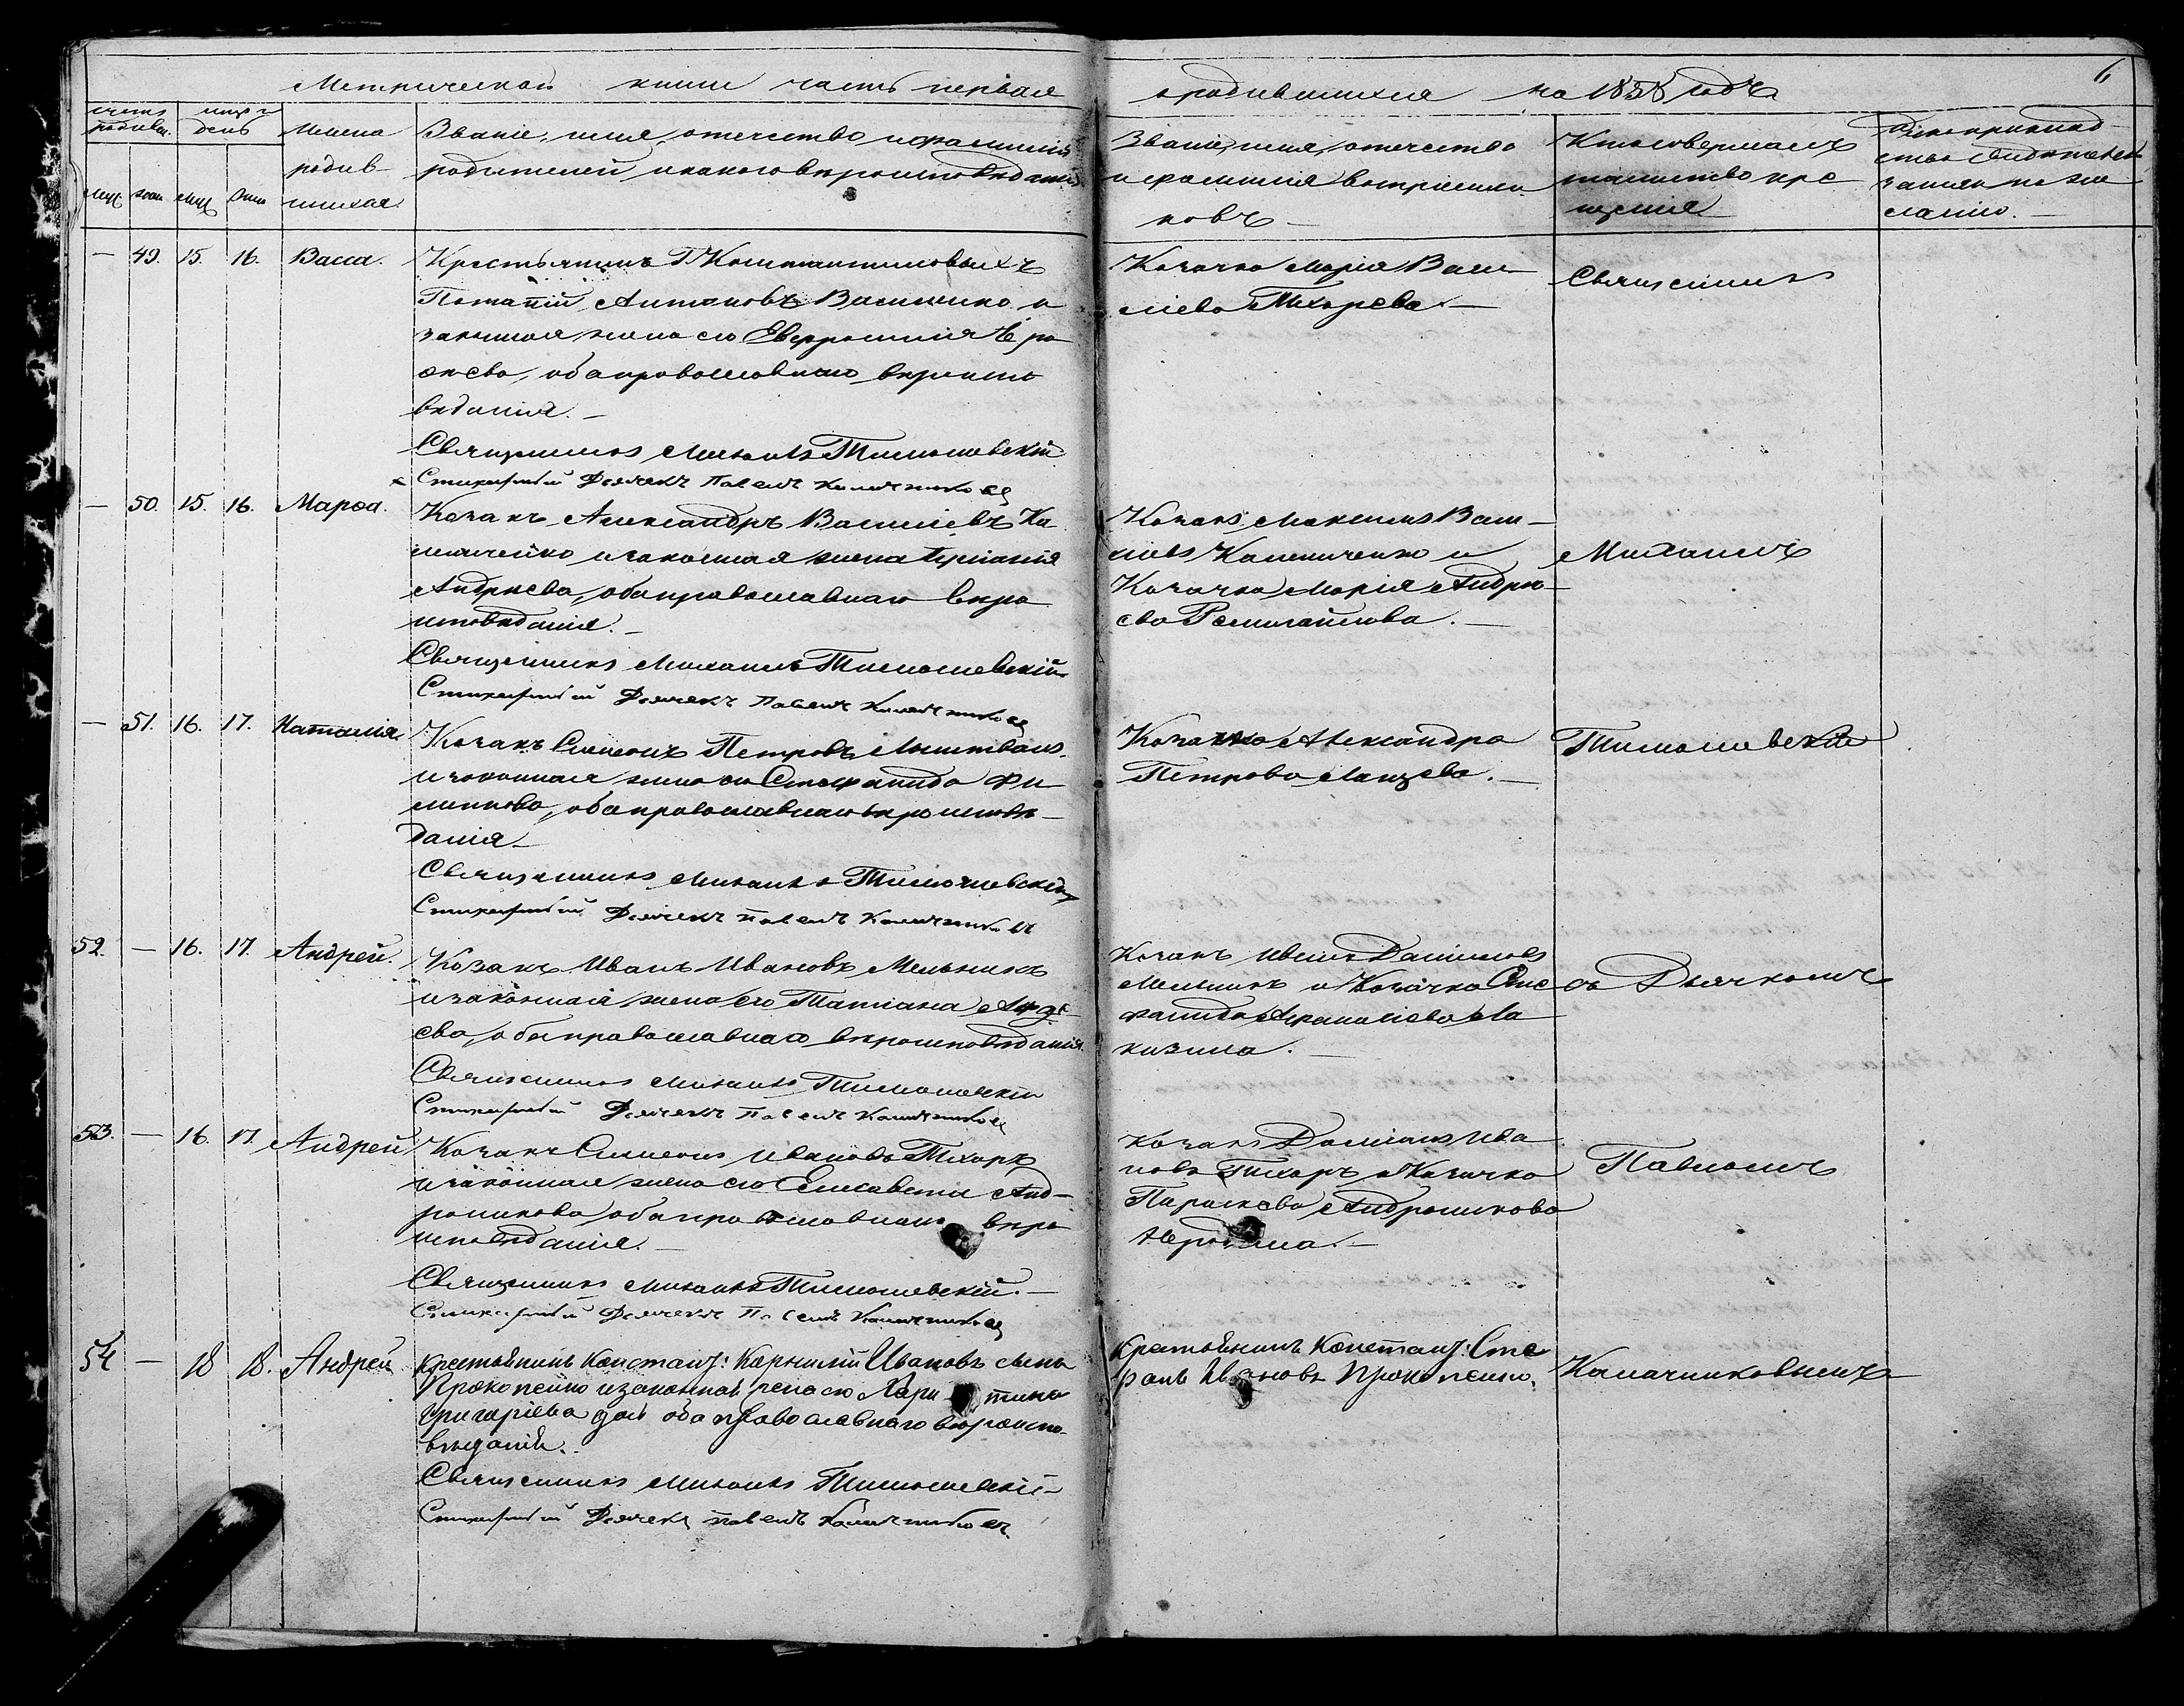 Метрической книги часть первая
о родившихся на 1858 годъ
6
счетъ родивш.
мцъ и день
Имена родив-
шихся.
Званіе, имя, отчество и фамилія
родителей, и какого вѣроисповѣданія
Званіе, имя, отчество
и фамилія воспріемни
ковъ
Кто совершалъ
таинство кре
щенія
Рукоприклад
ство свидѣтелей
записи по же
ланію.
— 49. 15. 16. Васса.
Крестьянинъ Г. Константиновыхъ
Потапій Антоновъ Василенко и
законная жена его Евфросинія
оба православнаго вѣроиспо
вѣданія.
Священникъ Михаилъ Тимошевскій
Стихарный Дьячекъ Павелъ Калачниковъ
Козачка Марія Васи
ліева Тихорева.
Священникъ
— 50. 15. 16. Марѳа.
Козакъ Александръ Василіевъ Ка
и законная жена
Андреева, оба православнаго вѣро
исповѣданія.
Священникъ Михаилъ Тимошевскій
Стихарный Дьячекъ Павелъ Калачниковъ
Козакъ Максимъ Васи
ліевъ и
Козачка Марія Андре
ева
Михаилъ
— 51. 16. 17. Наталія
Козакъ Симеонъ Петровъ Литвинъ
и законная жена его Стефанида Фи
липпова, оба православнаго вѣроисповѣ
данія
Священникъ Михаилъ Тимошевскій
Стихарный Дьячекъ Павелъ Калачниковъ
Козачка Александра
Петрова
Тимошевскій
52. — 16. 17. Андрей.
Козакъ Иванъ Ивановъ Мельникъ
и законная жена его Татіана
ева, оба православнаго вѣроисповѣданія.
Священникъ Михаилъ Тимошевскій
Стихарный Дьячекъ Павелъ Калачниковъ
Козакъ Иванъ Даниловъ
Мельникъ и Козачка Сте
фанида Афанасіева
съ Дьячкомъ
53. — 16. 17. Андрей
Козакъ Симеонъ Ивановъ Тихорь
и законная жена его Елисавета Анд
роникова, оба православнаго вѣро
исповѣданія.
Священникъ Михаилъ Тимошевскій.
Стихарный Дьячекъ Павелъ Калачниковъ
Козакъ Даміанъ Ива
новъ Тихорь и Козачка
Параскева Андроникова
Павломъ
54 — 18 18. Андрей
Крестьянинъ Констант: Карнилій Ивановъ сынъ
Прокопенко и законная жена его Харитина
Григоріева дочь оба православнаго вѣроиспо
вѣданія.
Священникъ Михаилъ Тимошевскій
Стихарный Дьячекъ Павелъ Калачниковъ
Крестьянинъ Констант: Сте
фанъ Ивановъ Прокопенко.
Калачниковымъ